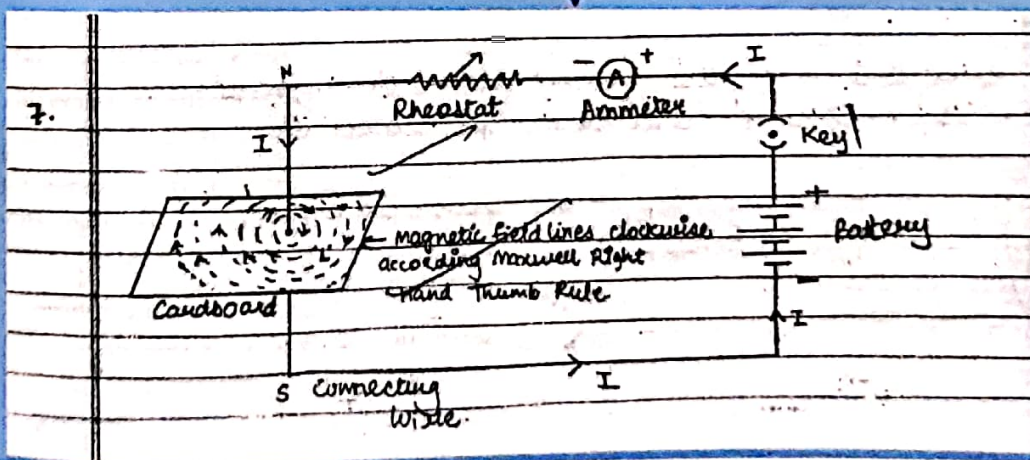 N
- A +
I
7.
Rheostat
Ammeter
I
Key
+
Magnetic field lines clockwise
Battery
according Maxwell Right
-
Hand Thumb Rule
Cardboard
I
I
S Connecting
Wire.